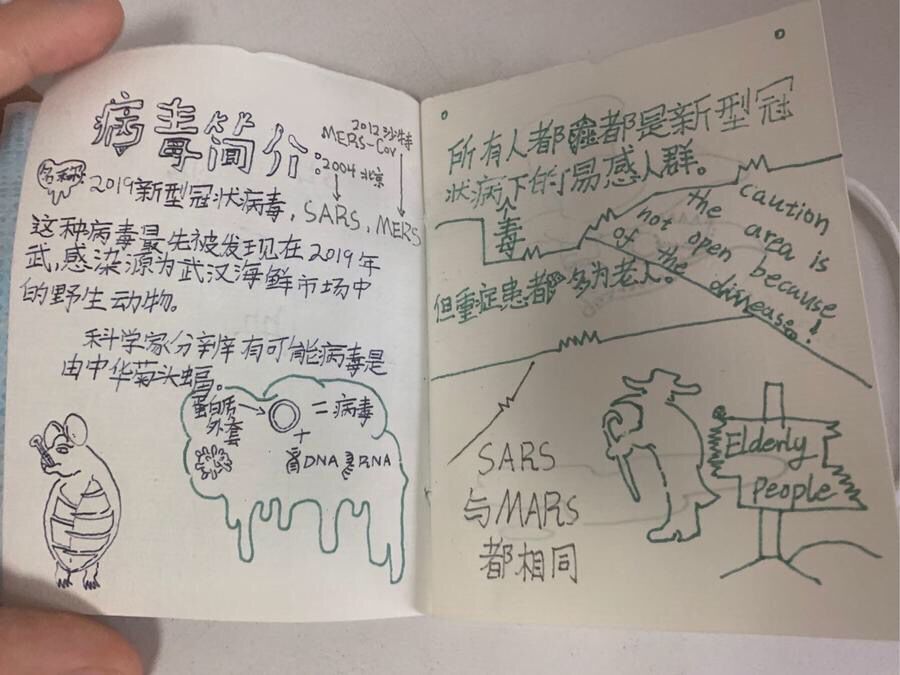 病毒简介:
2012沙特
MERS-Cov
2004北京
名称
2019新型冠状病毒，SARS，MERS
这种病毒最先被发现在2019年
武，感染源为武汉海鲜市场中
的野生动物。
科学家分辨有可能病毒是
由中华菊头蝠。
蛋白质
外套
=病毒
+
DNA
RNA
所有人都都是新型冠
状病下的易感人群。
毒
但重症患都多为老人。
the caution
area is
not open because
of the disease!
SARS
与MARS
都相同
Elderly
People